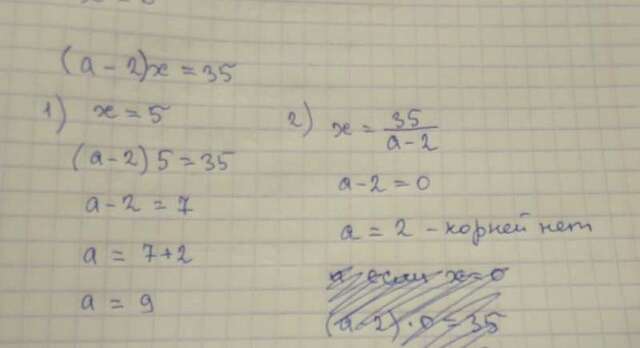 (a - 2)x = 35
1) x = 5
(a - 2) 5 = 35
a - 2 = 7
a = 7 + 2
a = 9
2) x = 35/(a - 2)
a - 2 = 0
a = 2 - корней нет
если x = 0
(a - 2) · 0 = 35